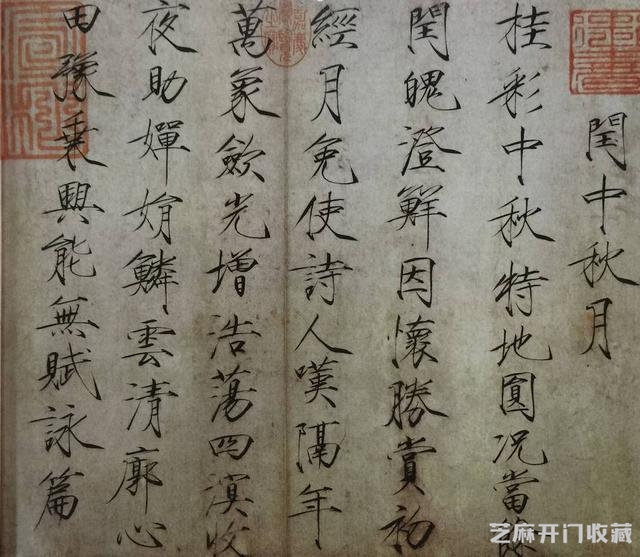 閏中秋月
桂彩中秋特地圓況當餘
閏魄澄鮮因懷勝賞初
經月免使詩人嘆隔年
萬象斂光增浩蕩四溟收
夜助嬋娟鱗雲清廓心
田豫乘興能無賦詠篇
芝麻开门收藏